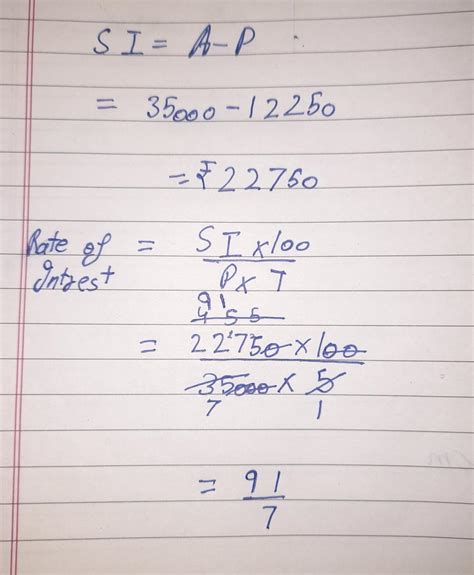 SI = A-P
= 35000 - 12250
= ₹22750
Rate of Intrest = SI x100
P x T
91
455
= 22750 x 100
35000 x 5
7 1
= 91
7